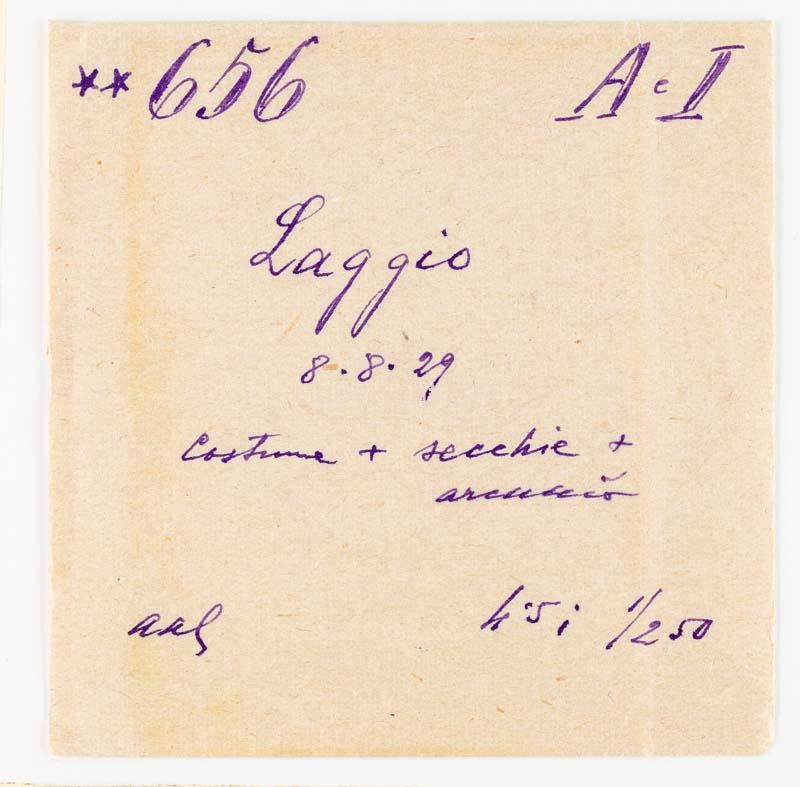 **656 A·I
Laggio
8·8·29
costume + secchie +
arcuniò
aal
4·5 i 1/250